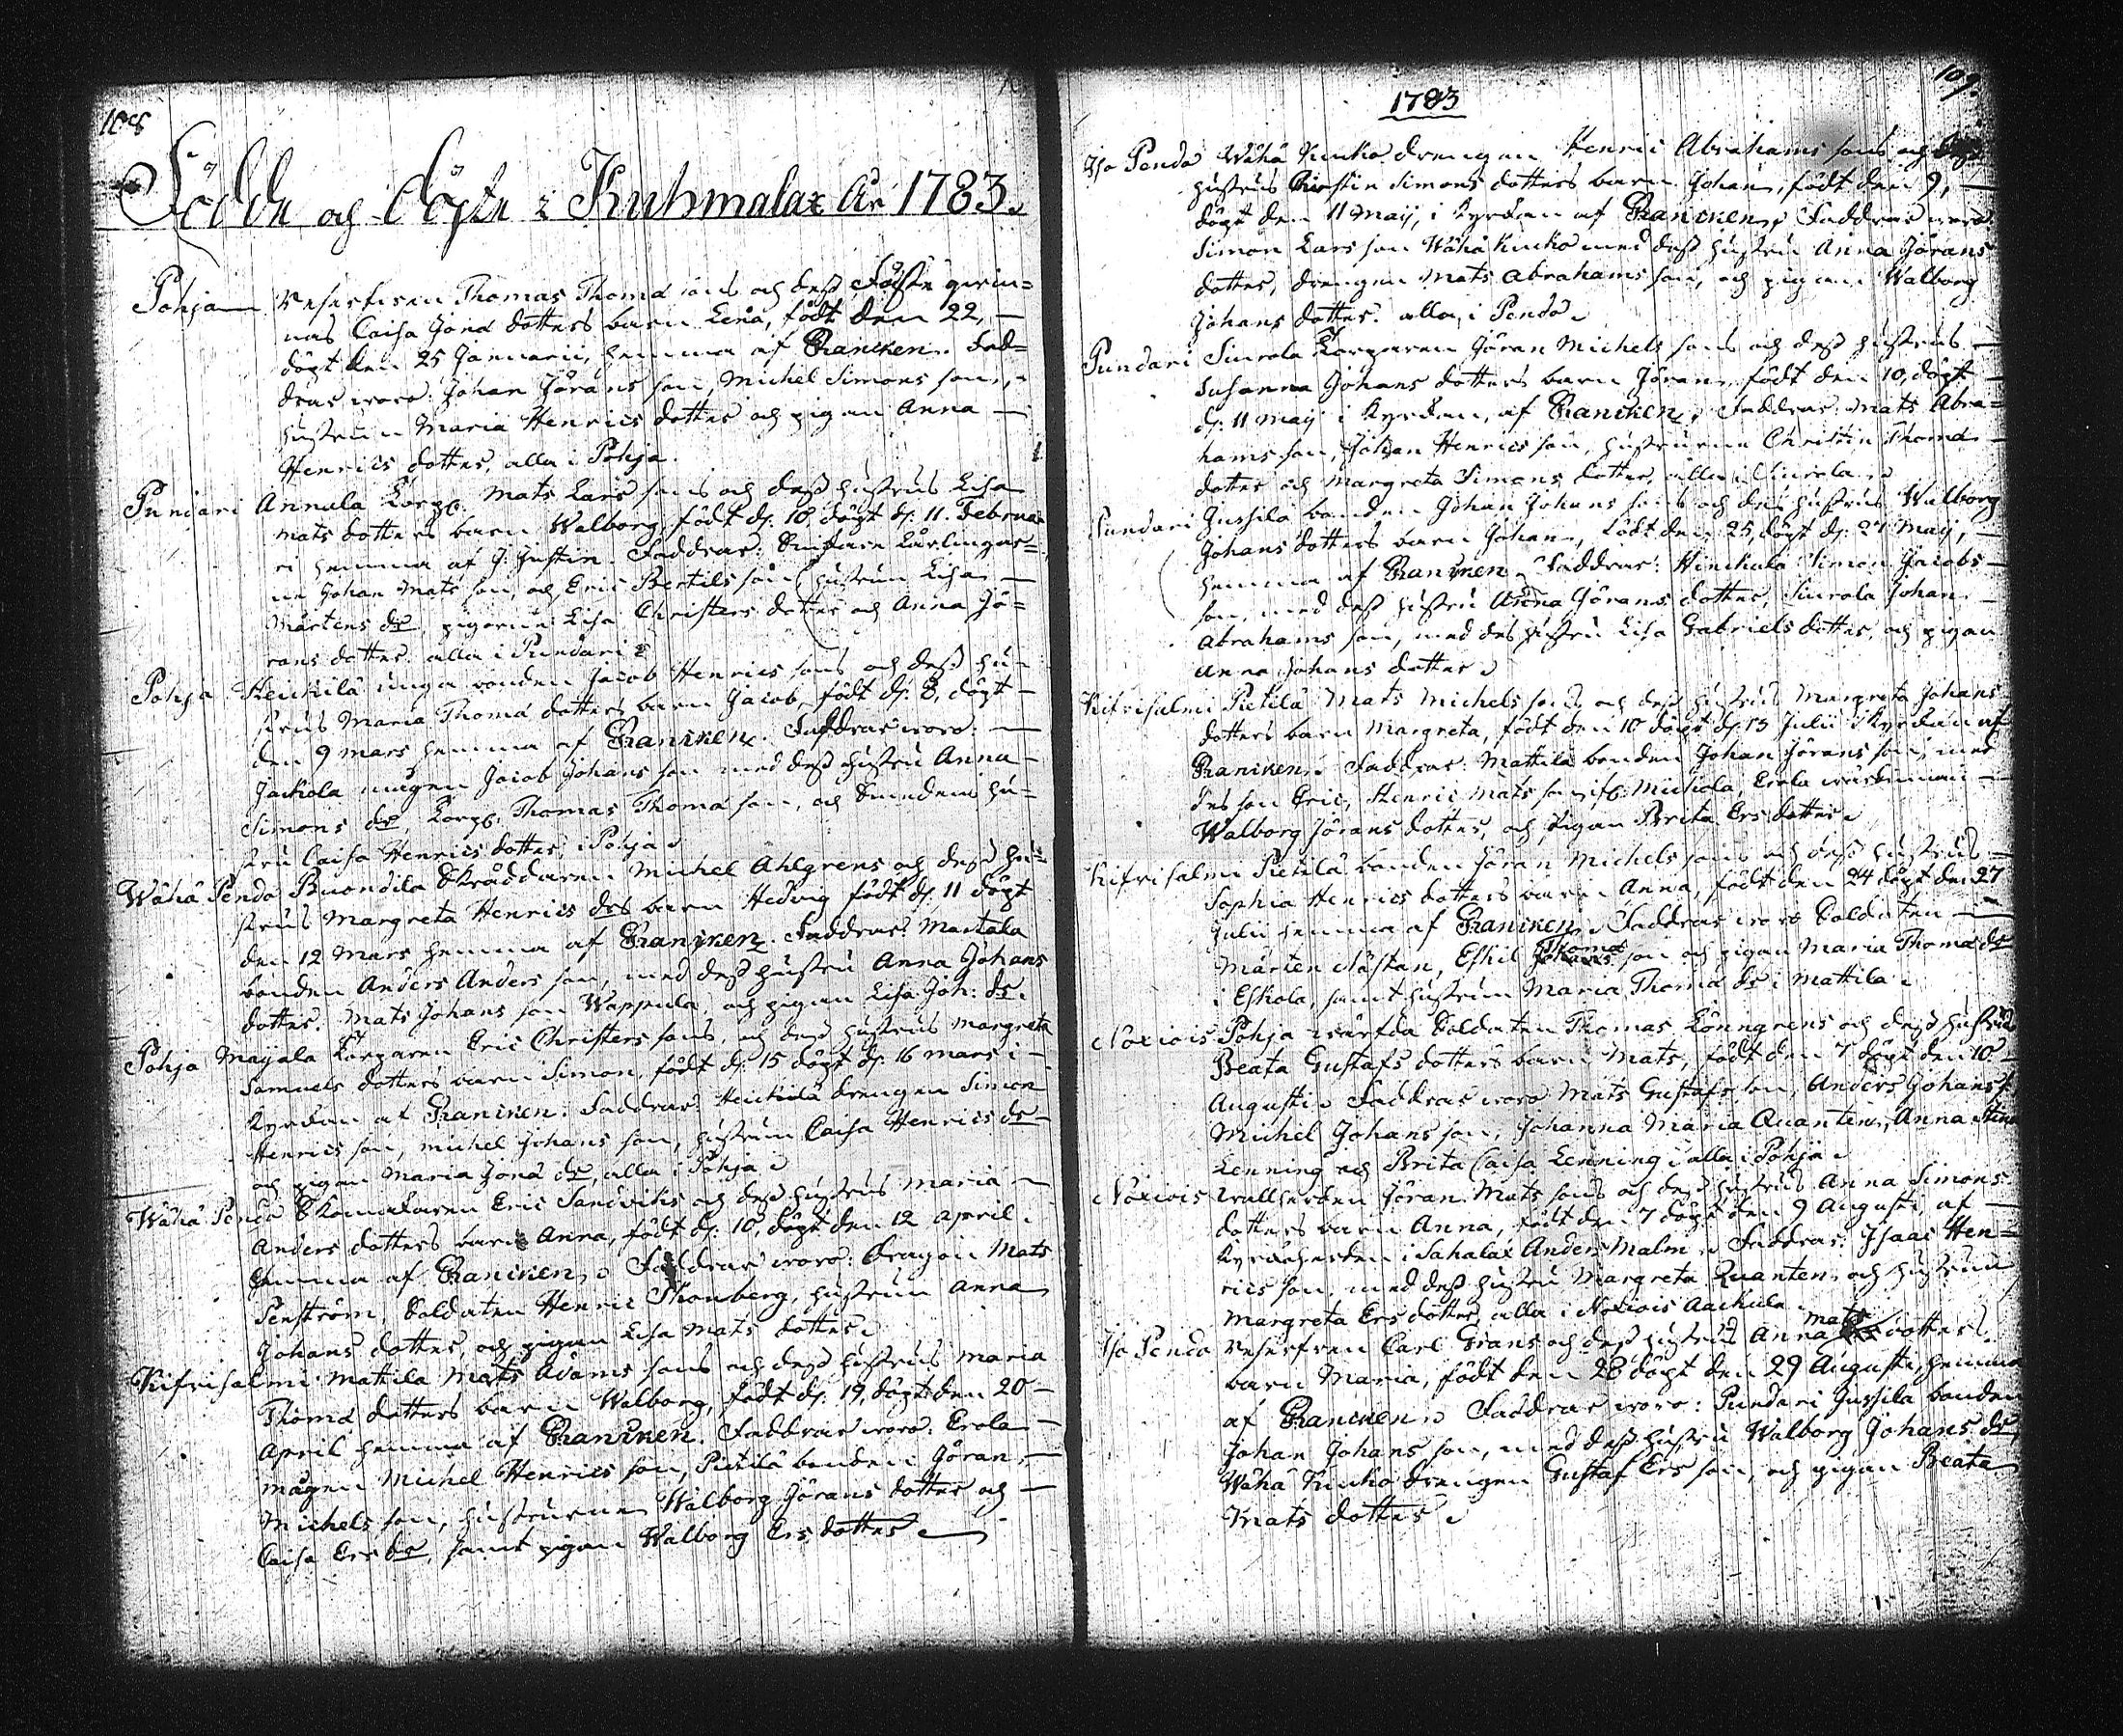 108
Födde och döpte i Kuhmalax År 1783.
Pohja Reserfven Thomas Thomæ sons och dess Fäste qvin-
nas Caisa Jonæ dotters barn Lena, född den 22,
döpt den 25 Januarii, hemma af Francken. Fad-
drar woro: Johan Jörans son, Michel Simons son,
hustrun Maria Henrics dotter och pigan Anna
Henrics dotter, alla i Pohja.
Pundari Annala Torp: Mats Lars sons och dess hustrus Lisa
Mats dotters barn Walborg, född d: 10 döpt d: 11. Februa-
ri hemma af J: Justin. Faddrar:
Johan Mats son, och Eric Bertils son, hustrun Lisa
Mårtens dr, pigorne Lisa Christers dotter och Anna Jö-
rans dotter. alla i Pundari
Pohja Heickilä unga bonden Jacob Henrics sons och dess hu-
strus Maria Thomæ dotters barn Jacob, född d: 8, döpt
den 9 Mars hemma af Francken. Faddrar woro:
Jackola mågen Jacob Johans son med dess hustru Anna
Simons dr, Torp: Thomas Thomæ son, och Smedens hu-
stru Caisa Henrics dotter i Pohja
Wähä Pendo Buondila Skräddaren Michel Ahlgrens och dess hu-
strus Margreta Henrics drs barn Hedvig född d: 11 döpt
den 12 Mars hemma af Francken. Faddrar: Martala
bonden Anders Anders son, med dess hustru Anna Johans
dotter. Mats Johans son Wappula, och pigan Lisa Joh: dr.
Pohja Majala Torparen Eric Christers sons, och dess hustrus Margreta
Samuels dotters barn Simon, född d: 15 döpt d: 16 Mars i
Kyrckan af Francken: Faddrar: Heickilä drengen Simon
Henrics son, Michel Johans son, hustrun Caisa Henrics dr
och pigan Maria Jonæ dr, alla i Pohja
Wähä Pendo Skomakaren Eric Sandviks och dess hustrus Maria
Anders dotters barn Anna, född d: 10, döpt den 12 April
hemma af Francken, Faddrar woro: Dragon Mats
Penström, Soldaten Henric Skonberg, hustrun Anna
Johans dotter, och pigan Lisa Mats dotter
Kifrisalmi Mattila Mats Adams sons och dess hustrus Maria
Thomæ dotters barn Walborg, född d: 19, döpt den 20
April hemma af Francken. Faddrar woro: Erola
mågen Michel Henrics son, Pietilä bonden Jöran
Michels son, hustruerne Walborg Jörans dotter och
Caisa Ers dr, samt pigan Walborg Ers dotter
109.
1783
Iso Pendo Wähä Kuicko drengen Henric Abrahams sons och dess
hustrus Kirstin Simons dotters barn Johan, född den 9,
döpt den 11 Maij, i Kyrckan af Francken, Faddrar woro
Simon Lars son Wähä Kuicko med dess hustru Anna Jörans
dotter, drengen Mats Abrahams son, och pigan Walborg
Johans dotter. alla i Pendo
Pundari Sinrola Torparen Jöran Michels sons och dess hustrus
Susanna Johans dotters barn Jöran, född den 10, döpt
d: 11 Maij i Kyrckan, af Francken, Faddrar: Mats Abra-
hams son, Johan Henrics son, hustruerne Christin Thomæ
dotter och Margreta Simons dotter, alla i Sinrola
Pundari Jussila bonden Johan Johans sons och dess hustrus Walborg
Johans dotters barn Johan, född den 25, döpt d: 27 Maij,
hemma af Francken, Faddrar: Hinckala Simon Jacobs
son, med dess hustru Anna Jörans dotter, Sinrola Johan
Abrahams son, med dess hustru Lisa Gabriels dotter, och pigan
Anna Johans dotter
Kifrisalmi Pietilä Mats Michels sons och dess hustrus Margreta Johans
dotters barn Margreta, född den 10 döpt d: 13 Julii i Kyrckan af
Francken. Faddrar: Mattila bonden Johan Jörans son, med
dess son Eric, Henric Mats son Michola, Erola wärdinnan
Walborg Jörans dotter, och pigan Brita Ers dotter
Kifrisalmi Pietilä bonden Jöran Michels sons och dess hustrus
Sophia Henrics dotters barn Anna, född den 24 döpt den 27
Julii hemma af Francken, Faddrar woro Soldaten
Mårten Nästan, Eskil Thomæ son och pigan Maria Thomæ dr
i Eskola, samt hustrun Maria Thomæ dr i Mattila
Noxiois Pohja wärfda Soldaten Thomas Lönngrens och dess hustrus
Beata Gustafs dotters barn Mats, född den 7 döpt den 10
Augusti. Faddrar woro Mats Gustafs son, Anders Johans s.
Michel Johans son, Johanna Maria Quanten, Anna Stina
Lenning och Brita Caisa Lenning, alla i Pohja
Noxiois Wallherden Jöran Mats sons och dess hustrus Anna Simons
dotters barn Anna, född den 7 döpt den 9 Augusti, af
Kyrckoherden i Sahalax Anders Malm. Faddrar: Isaac Hen-
rics son, med dess hustru Margreta Quanten, och hustrun
Margreta Ers dotter alla i Noxiois Aackula
Iso Pendo Reserfven Carl Grans och dess hustrus Anna Mats dotters
barn Maria, född den 28 döpt den 29 Augusti, hemma
af Francken. Faddrar woro: Pundari Jussila bonden
Johan Johans son, med dess hustru Walborg Johans dr,
Wähä Kuicko drengen Gustaf Ers son, och pigan Beata
Mats dotter